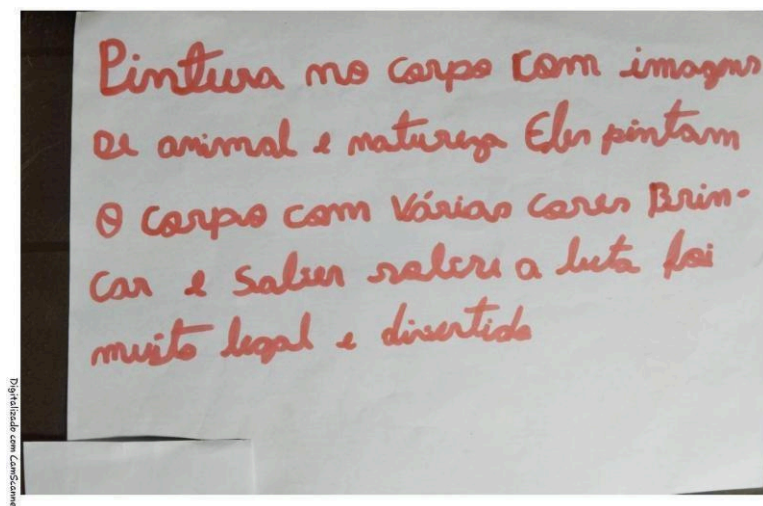 Pintura no corpo com imagens
de animal e natureza Eles pintam
O corpo com várias cores Brin-
car e Saber sobre a luta foi
muito legal e divertido
Digitalizado com CamScanne